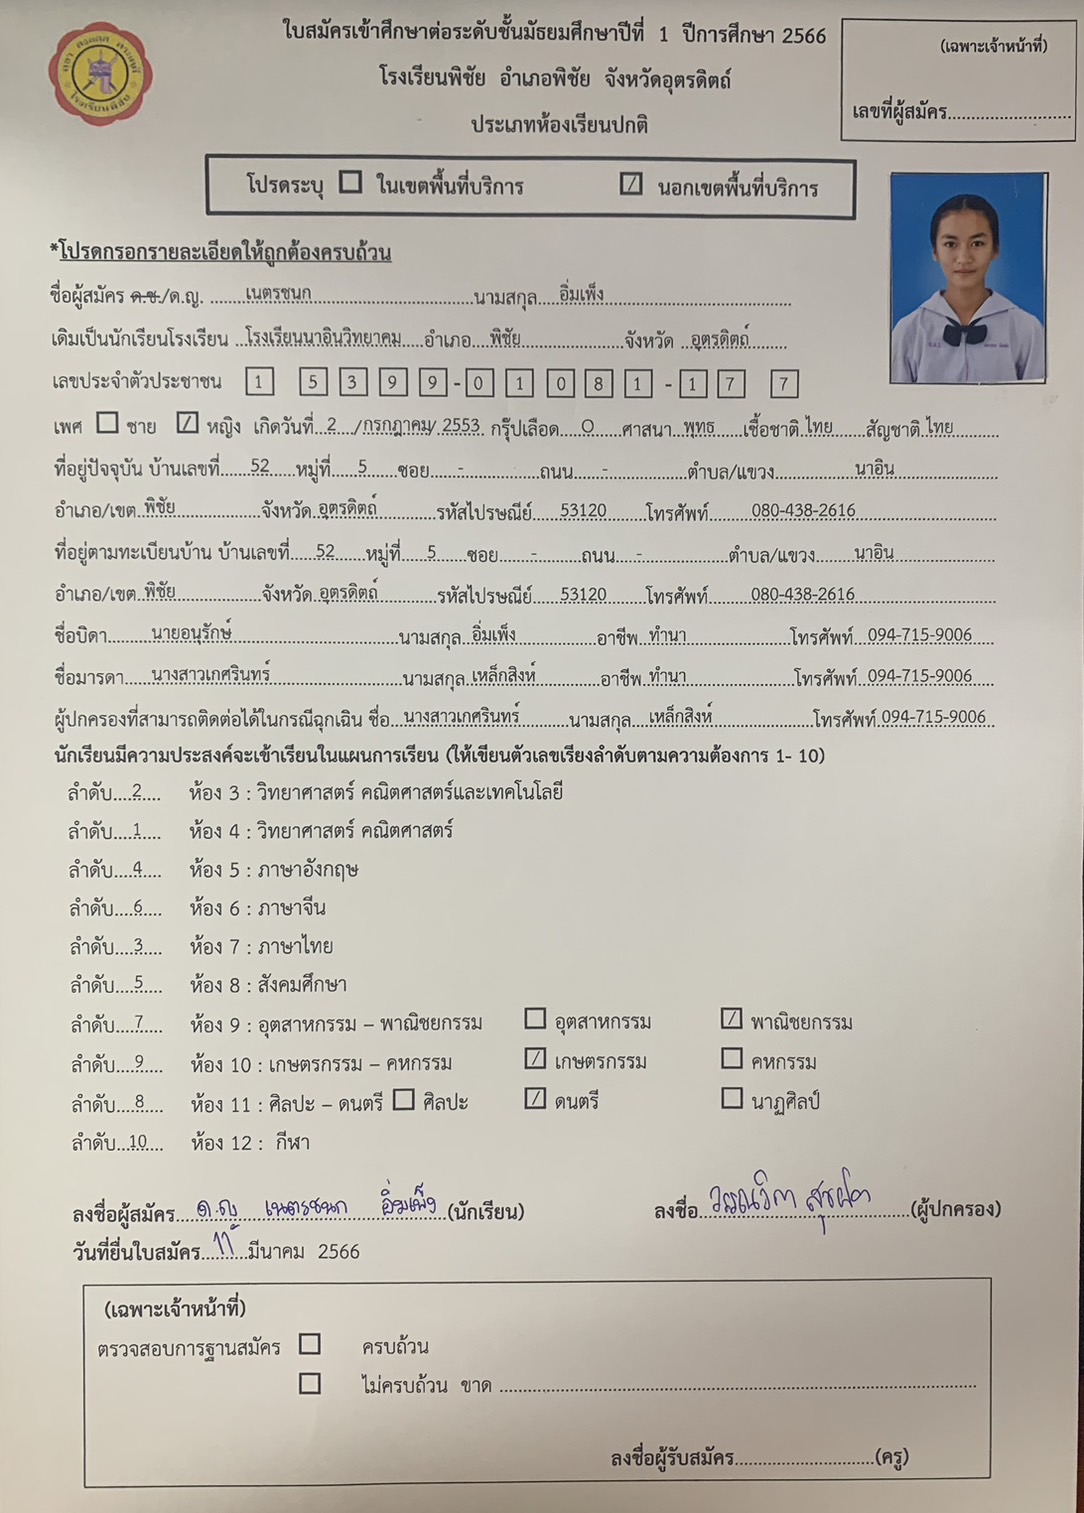 ใบสมัครเข้าศึกษาต่อระดับชั้นมัธยมศึกษาปีที่ 1 ปีการศึกษา 2566
(เฉพาะเจ้าหน้าที่)
โรงเรียนพิชัย อำเภอพิชัย จังหวัดอุตรดิตถ์
เลขที่ผู้สมัคร
ประเภทห้องเรียนปกติ
โรงเรียนพิชัย
โปรดระบุ ☐ ในเขตพื้นที่บริการ ☑ นอกเขตพื้นที่บริการ
*โปรดกรอกรายละเอียดให้ถูกต้องครบถ้วน
ชื่อผู้สมัคร ด.ช./ด.ญ. เนตรชนก นามสกุล อิ่มเพ็ง
เดิมเป็นนักเรียนโรงเรียน โรงเรียนนาอินวิทยาคม อำเภอ พิชัย จังหวัด อุตรดิตถ์
เลขประจำตัวประชาชน 1 5 3 9 9 - 0 1 0 8 1 - 1 7 7
เพศ ☐ ชาย ☑ หญิง เกิดวันที่ 2 /กรกฎาคม/ 2553 กรุ๊ปเลือด O ศาสนา พุทธ เชื้อชาติ ไทย สัญชาติ ไทย
ที่อยู่ปัจจุบัน บ้านเลขที่ 52 หมู่ที่ 5 ซอย - ถนน - ตำบล/แขวง นาอิน
อำเภอ/เขต พิชัย จังหวัด อุตรดิตถ์ รหัสไปรษณีย์ 53120 โทรศัพท์ 080-438-2616
ที่อยู่ตามทะเบียนบ้าน บ้านเลขที่ 52 หมู่ที่ 5 ซอย - ถนน - ตำบล/แขวง นาอิน
อำเภอ/เขต พิชัย จังหวัด อุตรดิตถ์ รหัสไปรษณีย์ 53120 โทรศัพท์ 080-438-2616
ชื่อบิดา นายอนุรักษ์ นามสกุล อิ่มเพ็ง อาชีพ ทำนา โทรศัพท์ 094-715-9006
ชื่อมารดา นางสาวเกศรินทร์ นามสกุล เหล็กสิงห์ อาชีพ ทำนา โทรศัพท์ 094-715-9006
ผู้ปกครองที่สามารถติดต่อได้ในกรณีฉุกเฉิน ชื่อ นางสาวเกศรินทร์ นามสกุล เหล็กสิงห์ โทรศัพท์ 094-715-9006
นักเรียนมีความประสงค์จะเข้าเรียนในแผนการเรียน (ให้เขียนตัวเลขเรียงลำดับตามความต้องการ 1- 10)
ลำดับ 2 ห้อง 3 : วิทยาศาสตร์ คณิตศาสตร์และเทคโนโลยี
ลำดับ 1 ห้อง 4 : วิทยาศาสตร์ คณิตศาสตร์
ลำดับ 4 ห้อง 5 : ภาษาอังกฤษ
ลำดับ 6 ห้อง 6 : ภาษาจีน
ลำดับ 3 ห้อง 7 : ภาษาไทย
ลำดับ 5 ห้อง 8 : สังคมศึกษา
ลำดับ 7 ห้อง 9 : อุตสาหกรรม – พาณิชยกรรม ☐ อุตสาหกรรม ☑ พาณิชยกรรม
ลำดับ 9 ห้อง 10 : เกษตรกรรม – คหกรรม ☑ เกษตรกรรม ☐ คหกรรม
ลำดับ 8 ห้อง 11 : ศิลปะ – ดนตรี ☐ ศิลปะ ☑ ดนตรี ☐ นาฏศิลป์
ลำดับ 10 ห้อง 12 : กีฬา
ลงชื่อผู้สมัคร ด.ญ เนตรชนก อิ่มเพ็ง (นักเรียน) ลงชื่อ (ผู้ปกครอง)
วันที่ยื่นใบสมัคร 11 มีนาคม 2566
(เฉพาะเจ้าหน้าที่)
ตรวจสอบการฐานสมัคร ☐ ครบถ้วน
☐ ไม่ครบถ้วน ขาด
ลงชื่อผู้รับสมัคร (ครู)